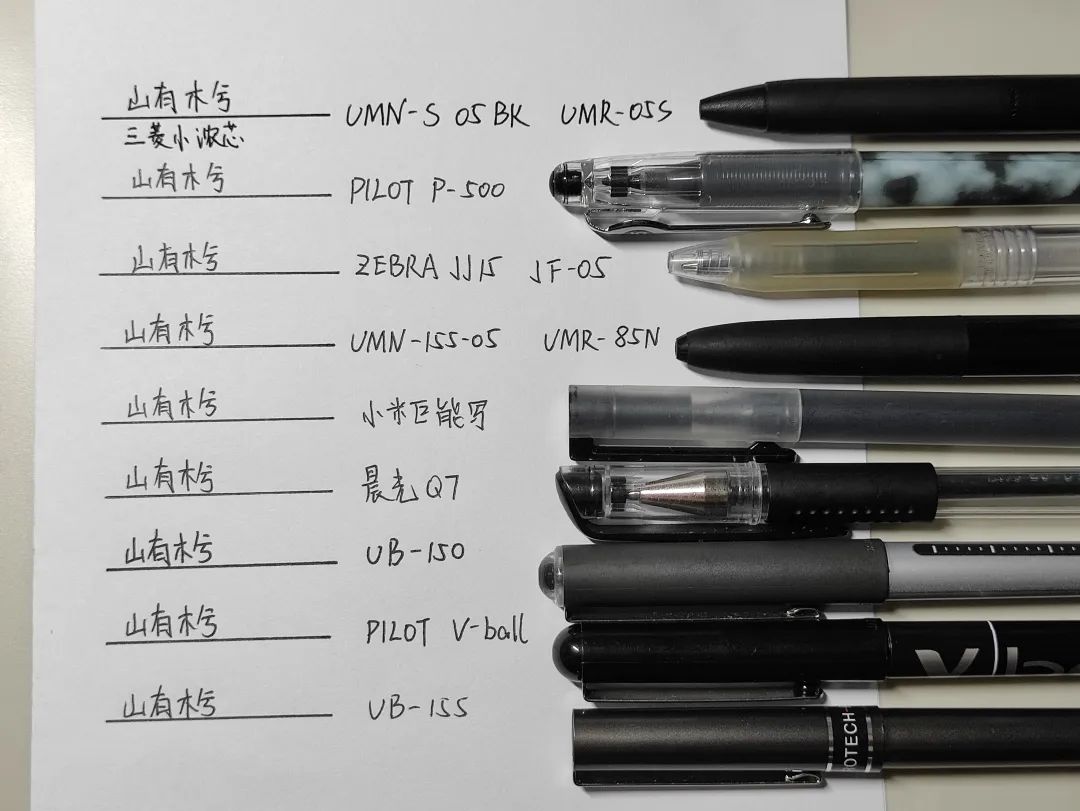 山有木兮 UMN-S 05 BK UMR-05S
三菱小浓芯
山有木兮 PILOT P-500
山有木兮 ZEBRA JJ15 JF-05
山有木兮 UMN-155-05 UMR-85N
山有木兮 小米巨能写
山有木兮 晨光 Q7
山有木兮 UB-150
山有木兮 PILOT V-ball
山有木兮 UB-155
OTECH